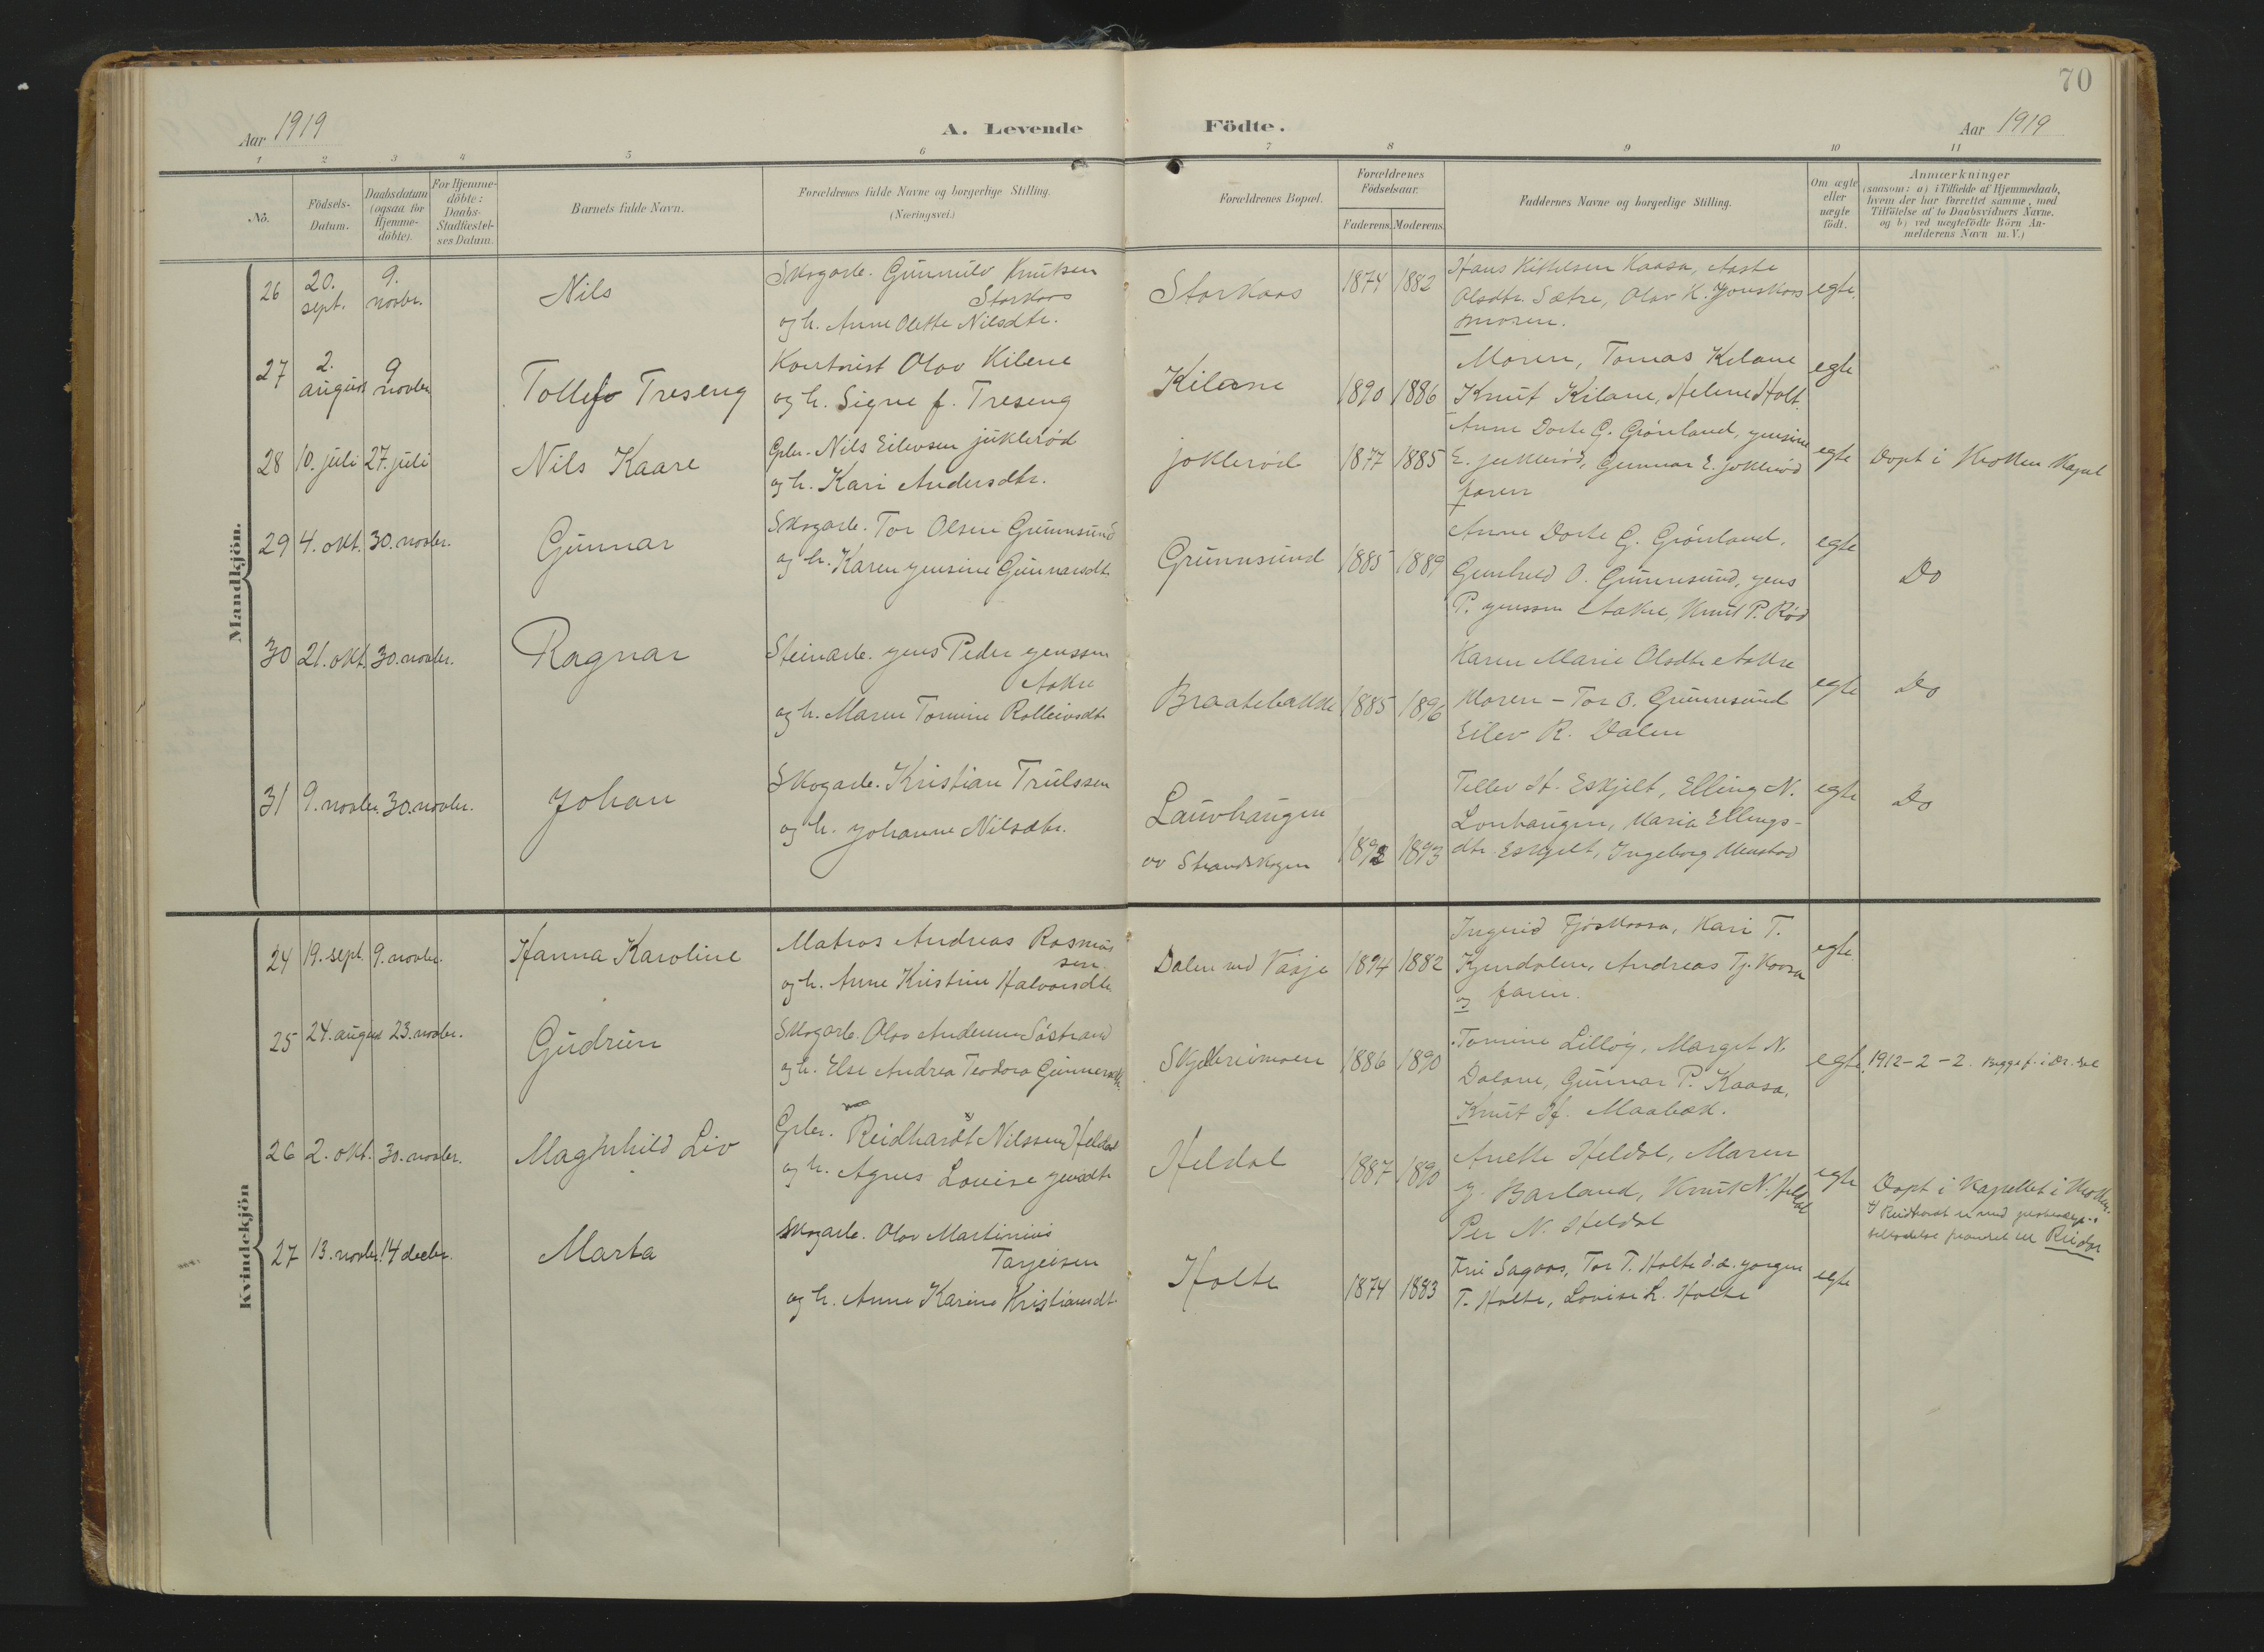 70
Aar 1919
A. Levende Födte.
Aar 1919
1 2 3 4 5 6 7 8 9 10 11
No.
Födsels-
Datum.
Daabsdatum
(ogsaa for
Hjemme-
döbte).
For Hjemme-
döbte:
Daabs-
Stadfæstel-
ses Datum.
Barnets fulde Navn.
Forældrenes fulde Navne og borgerlige Stilling.
(Næringsvei.)
Forældrenes Bopæl.
Forældrenes
Födselsaar.
Faderens. Moderens.
Faddernes Navne og borgerlige Stilling.
Om ægte
eller
uægte
födt.
Anmærkninger
(saasom: a) i Tilfælde af Hjemmedaab,
hvem der har forrettet samme, med
Tilföielse af to Daabsvidners Navne.
og b) ved uægtefödte Börn An-
melderens Navn m. V.)
Mandkjön.
26
20.
sept.
9.
novbr.
Nils
Skogarb. Gunnulv Knutsen
Storkaas
og h. Anne Olette Nilsdtr.
Storkaas
1874 1882
Hans Kittilsen Kaasa, Aaste
Olsdtr. Sætre, Olav K. Jonskaas
moren.
egte.
27
2.
august
9
novbr
Tollefv Treseng
Kontorist Olav Kilene
og h. Signe f. Treseng
Kilane
1890 1886
Moren, Tomas Kilane
Knut Kilane, Helene Holt.
egte
28 10. juli 27. juli
Nils Kaare
Gbr. Nils Eilevsen juklerød
og h. Kari Andersdtr.
joklerød
1877 1885
Anne Dorte G. Grönland, jensine
E. juklerød, Gunnar E. joklerød
faren
egte
Døpt i Kroken Kapel
29 4. okt. 30. novbr.
Gunnar
Skogarb. Tor Olsen Grunnsund
og h. Karen jensine Gunnarsdtr
Grunnsund
1885 1889
Anne Dorte G. Grönland,
Gunhild O. Grunnsund, jens
P. jenssen Aakre, Knut P. Rød
egte
Do
30 21. okt. 30. novbr.
Ragnar
Steinarb. jens Peder jenssen
Aakre
og h. Maren Tomine Rolleivsdtr
Braatebakke
1885 1896
Karen Marie Olsdtr Aakre
Moren - Tor O. Grunnsund
Eilev R. Dalen
egte
Do
31 9. novbr. 30. novbr.
Johan
Skogarb. Kristian Trulssen
og h. johanne Nilsdtr.
Lauvhaugen
av Strandskogen
1892 1893
Tellev H. Eskjelt, Elling N.
Lonhaugen, Maria Ellings-
dtr. Eskjelt, Ingeborg Menstad
egte
Do
Kvindekjön
24 19. sept. 9. novbr.
Hanna Karoline
Matros Andreas Rasmus
sen.
og h. Anne Kristine Halvorsdtr
Dalen ved Vaaje
1894 1882
Ingerid Fjöskaasa, Kari T.
Kjendalen, Andreas Tj. Kaasa
og faren.
egte
25 24. august 23. novbr.
Gudrun
Skogarb. Olav Andersen Söstrand
og h. Else Andrea Teodora Gunnersdtr.
Skjelbreimoen
1886 1890
Tomine Lilløy, Margit N.
Dalane, Gunnar P. Kaasa,
Knut H. Maabæk.
egte.
1912-2-2. Begge f. i Dr. del
26 2. okt. 30. novbr.
Maghhild Liv
Gbr. Reidhardt Nilssen Heldal
og h. Agnes Louise jensdtr
Heldal
1887 1890
Anette Heldal, Maren
J. Barland, Knut N. Heldal
Per N. Heldal
egte
Døpt i Kapellet i Kroken.
Reidhardt er med
tilladelse forandret til Reidar
27 13. novbr. 14 decbr.
Marta
Skogarb. Olav Martinius
Tarjeisen
og h. Anne Karine Kristiansdtr
Holte
1874 1883
Fru Sagaas, Tor T. Holte d.a. jørgen
T. Holte, Lovise L. Holte
egte